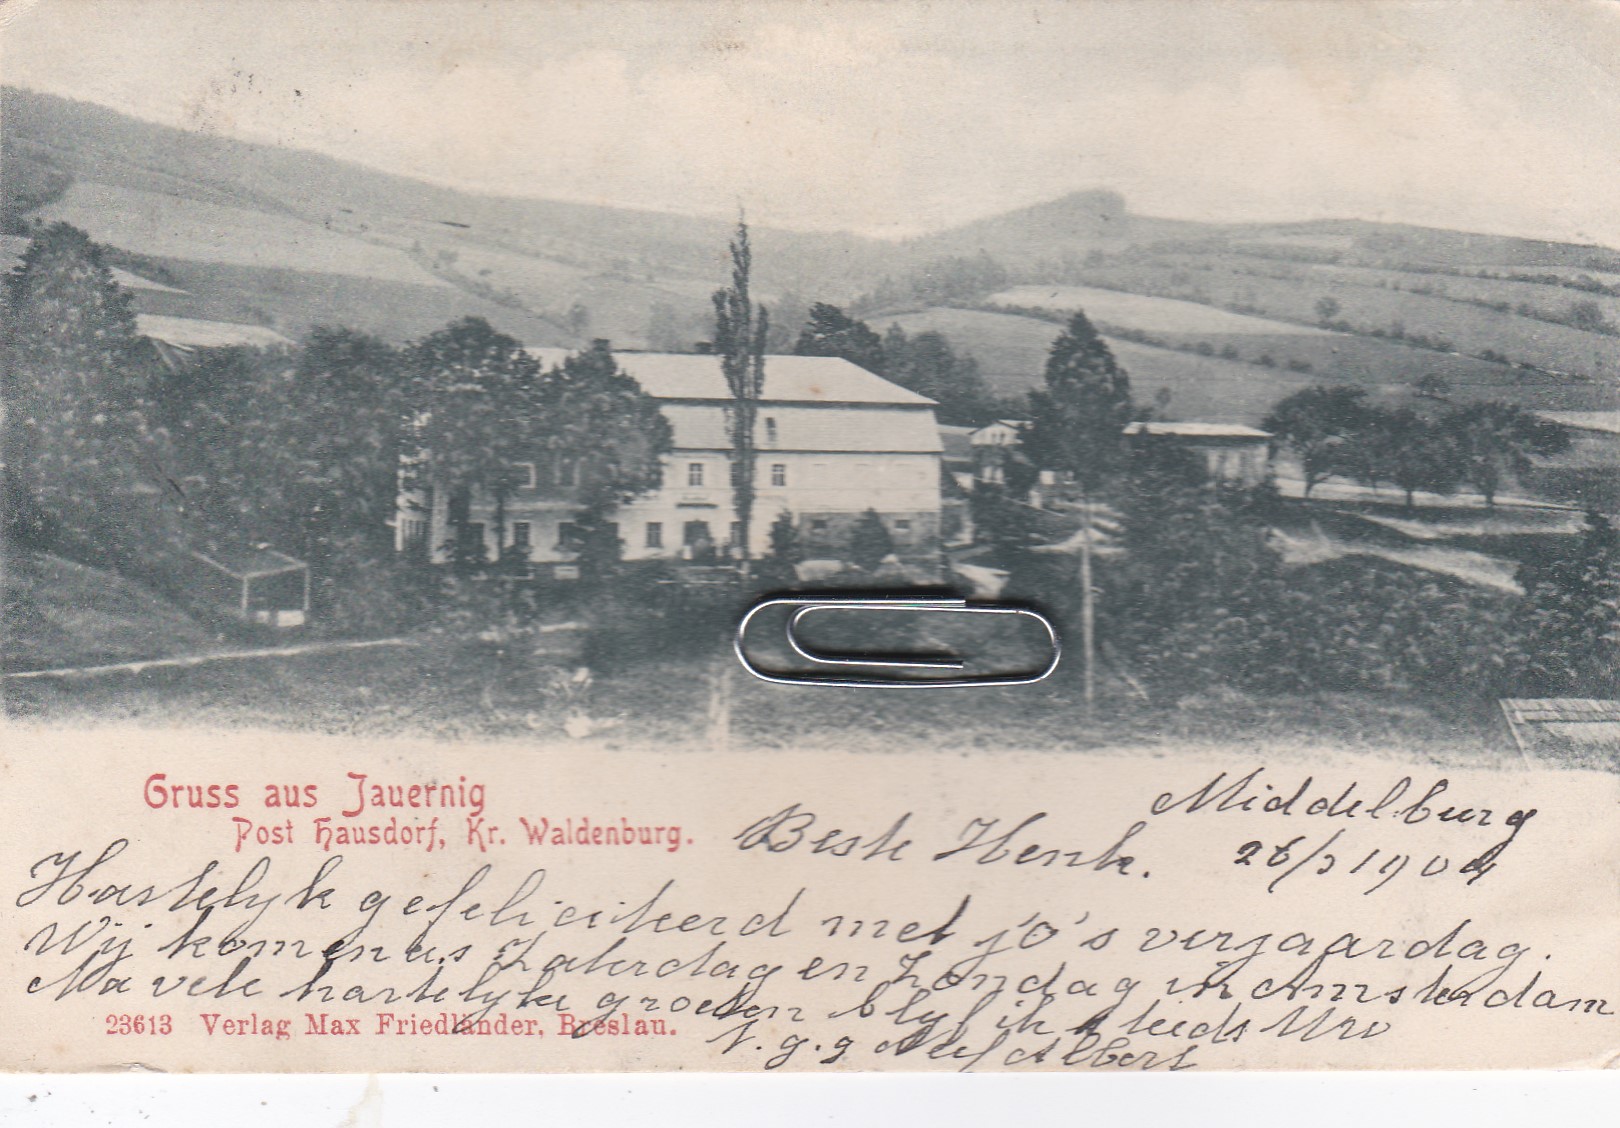 Gruss aus Jauernig
Post Hausdorf, Kr. Waldenburg.
Middelburg
26/3 1904
Beste Henk.
Hartelyk gefeliciteerd met jo's verjaardag.
Wij komen a.s. Zaterdag en Zondag in Amsterdam
Na vele hartelyke groeten blyf ik steeds Uw
23613 Verlag Max Friedländer, Breslau.
Neef Albert